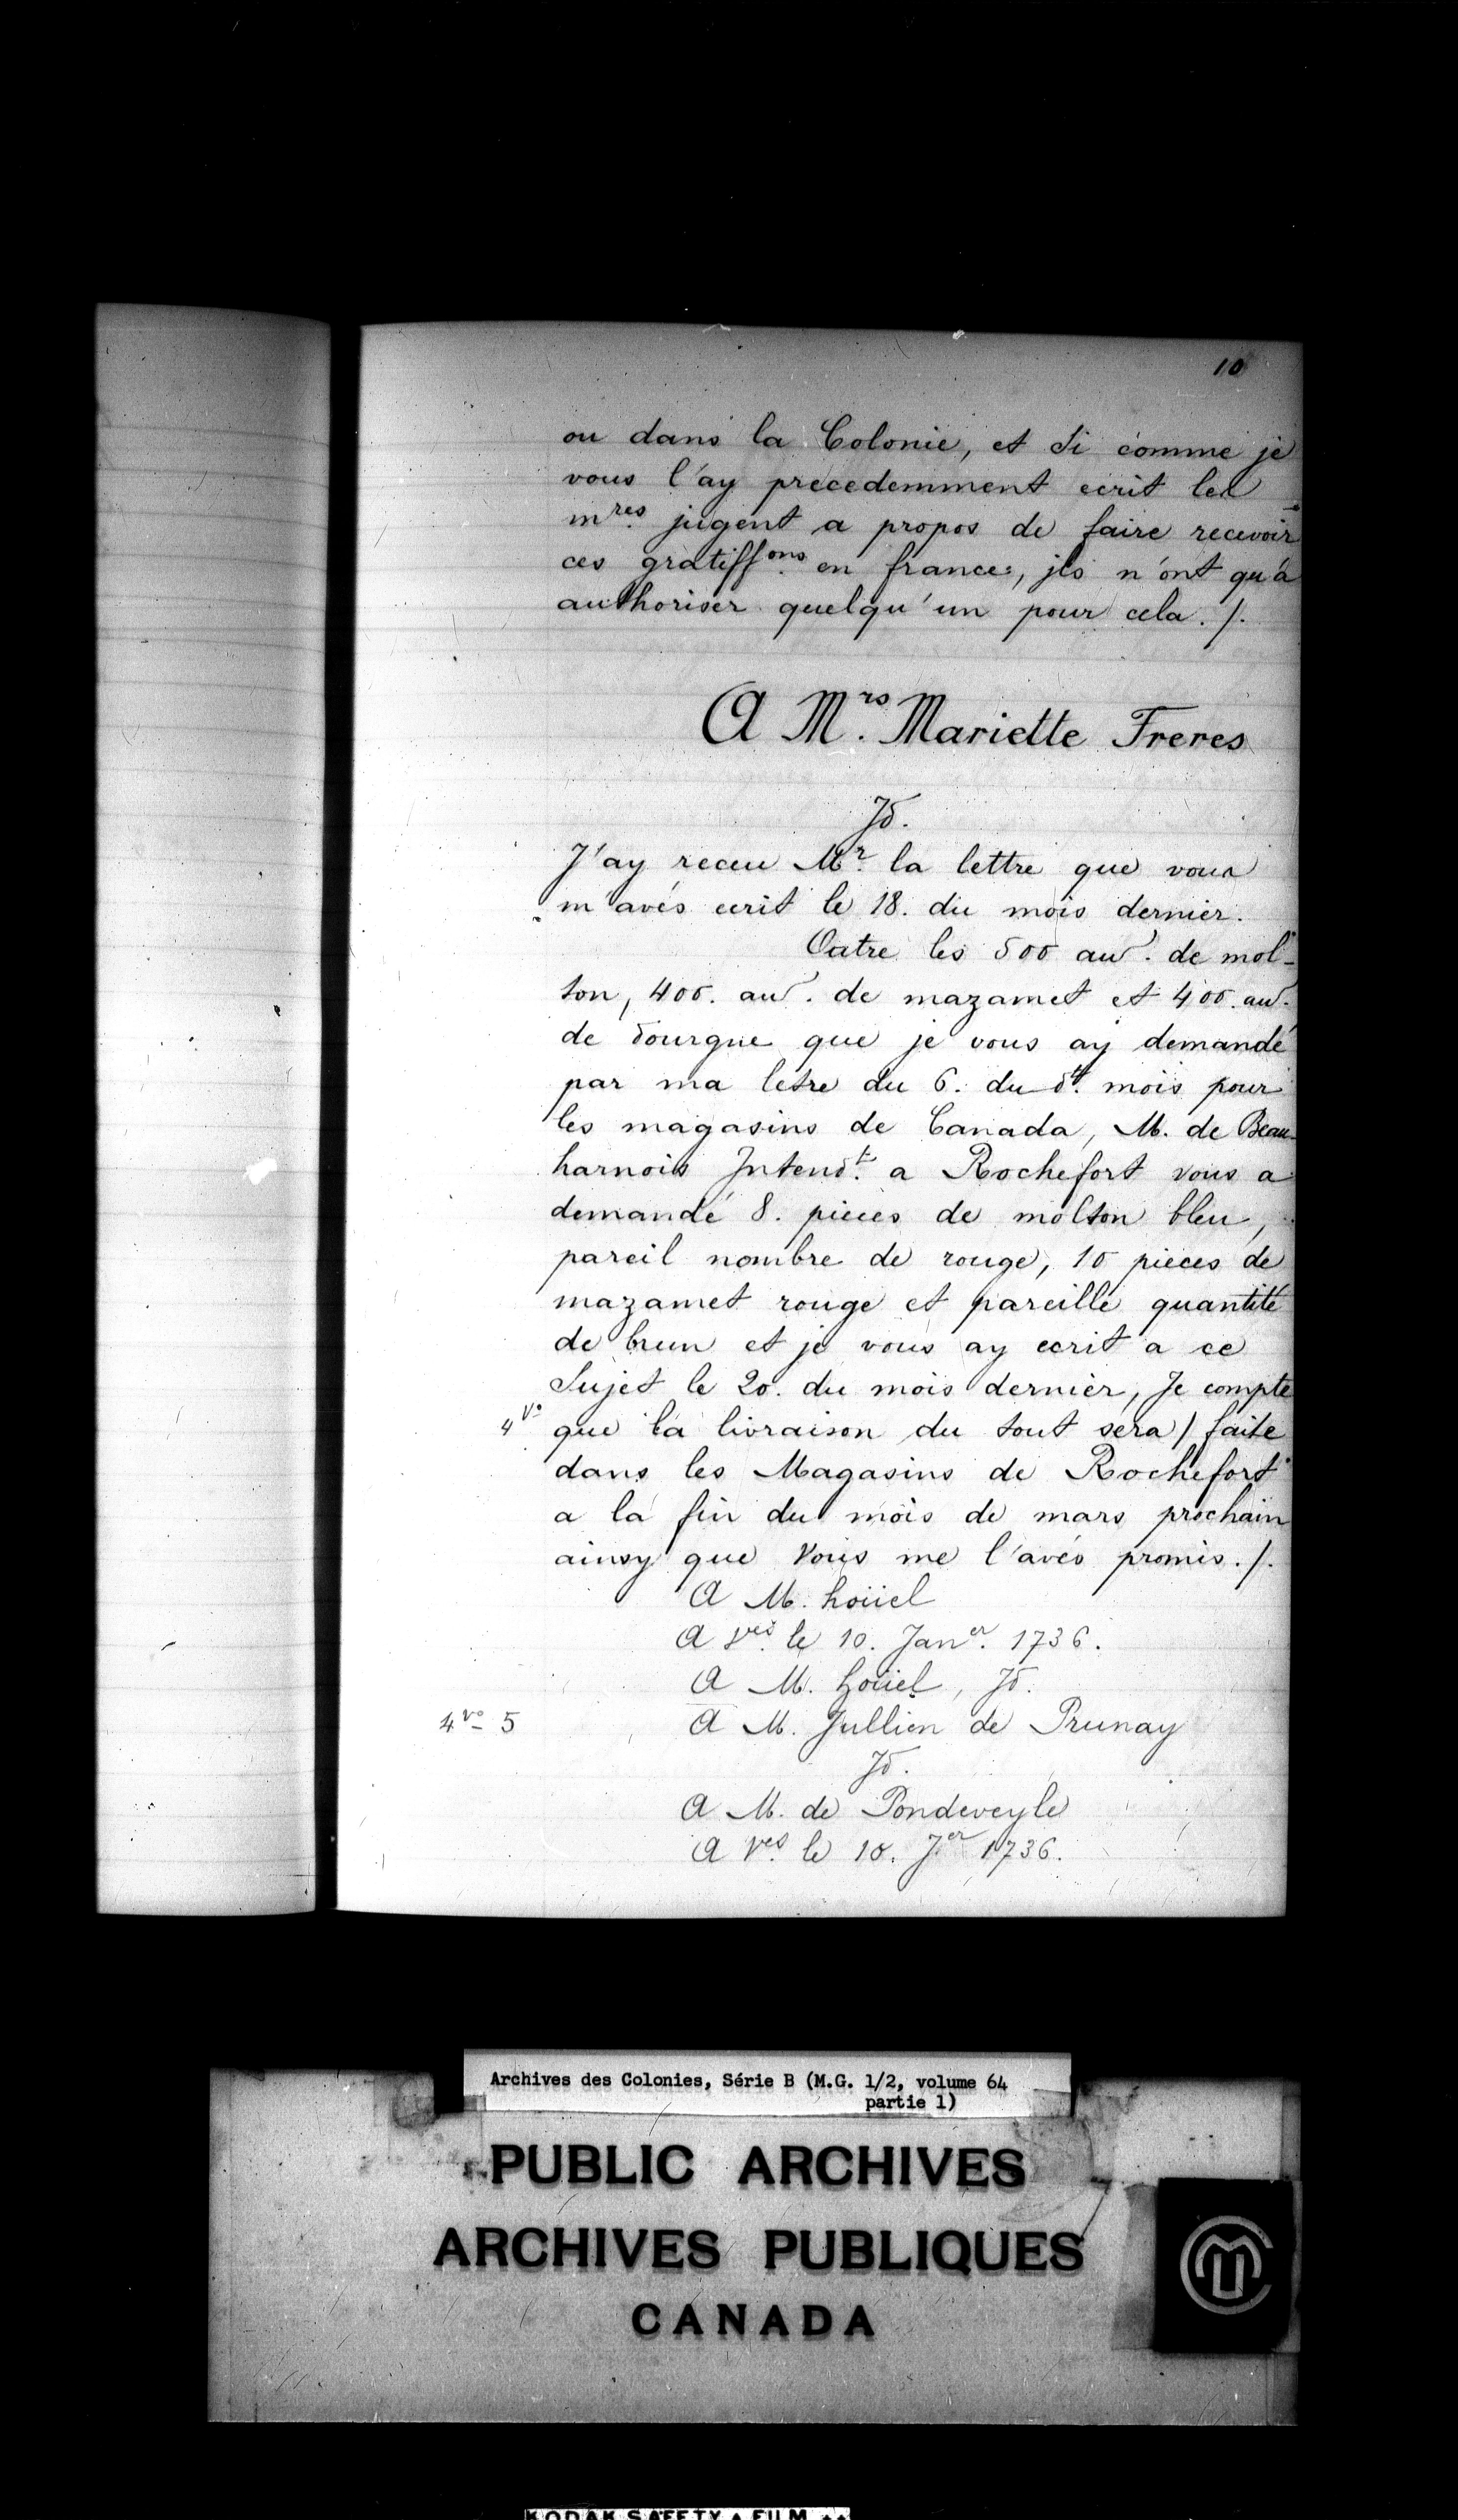 10
ou dans la Colonie, et Si comme je
vous l'ay precedemment ecrit les
mres jugent a propos de faire recevoir
ces gratiffons en france, jls n'ont qu'a
authoriser quelqu'un pour cela ./.
A Mrs Mariette Freres
Jd.
J'ay receu Mr. la lettre que vous
m'avés ecrit le 18. du mois dernier.
Outre les 500 au. de mol-
ton, 400. au. de mazamet et 400. au.
de dourgne que je vous ay demandé
par ma letre du 6. du dt. mois pour
les magasins de Canada, M. de Beau-
harnois Jntendt. a Rochefort vous a
demandé 8. pieces de molton bleu,
pareil nombre de rouge, 10 pieces de
mazamet rouge et pareille quantité
de brun et je vous ay ecrit a ce
Sujet le 20. du mois dernier, Je compte
4vo que la livraison du tout sera / faite
dans les Magasins de Rochefort
a la fin du mois de mars prochain
ainsy que Vous me l'avés promis ./.
A M. hoüel
A Ves. le 10. Janer. 1736.
A M. hoüel, Jd.
4vo 5 A M. Jullien de Prunay
Jd.
A M. de Pondeveyle
A Ves. le 10. Jer 1736.
Archives des Colonies, Série B (M.G. 1/2, volume 64
partie 1)
PUBLIC ARCHIVES
ARCHIVES PUBLIQUES
CANADA
KODAK SAFETY FILM